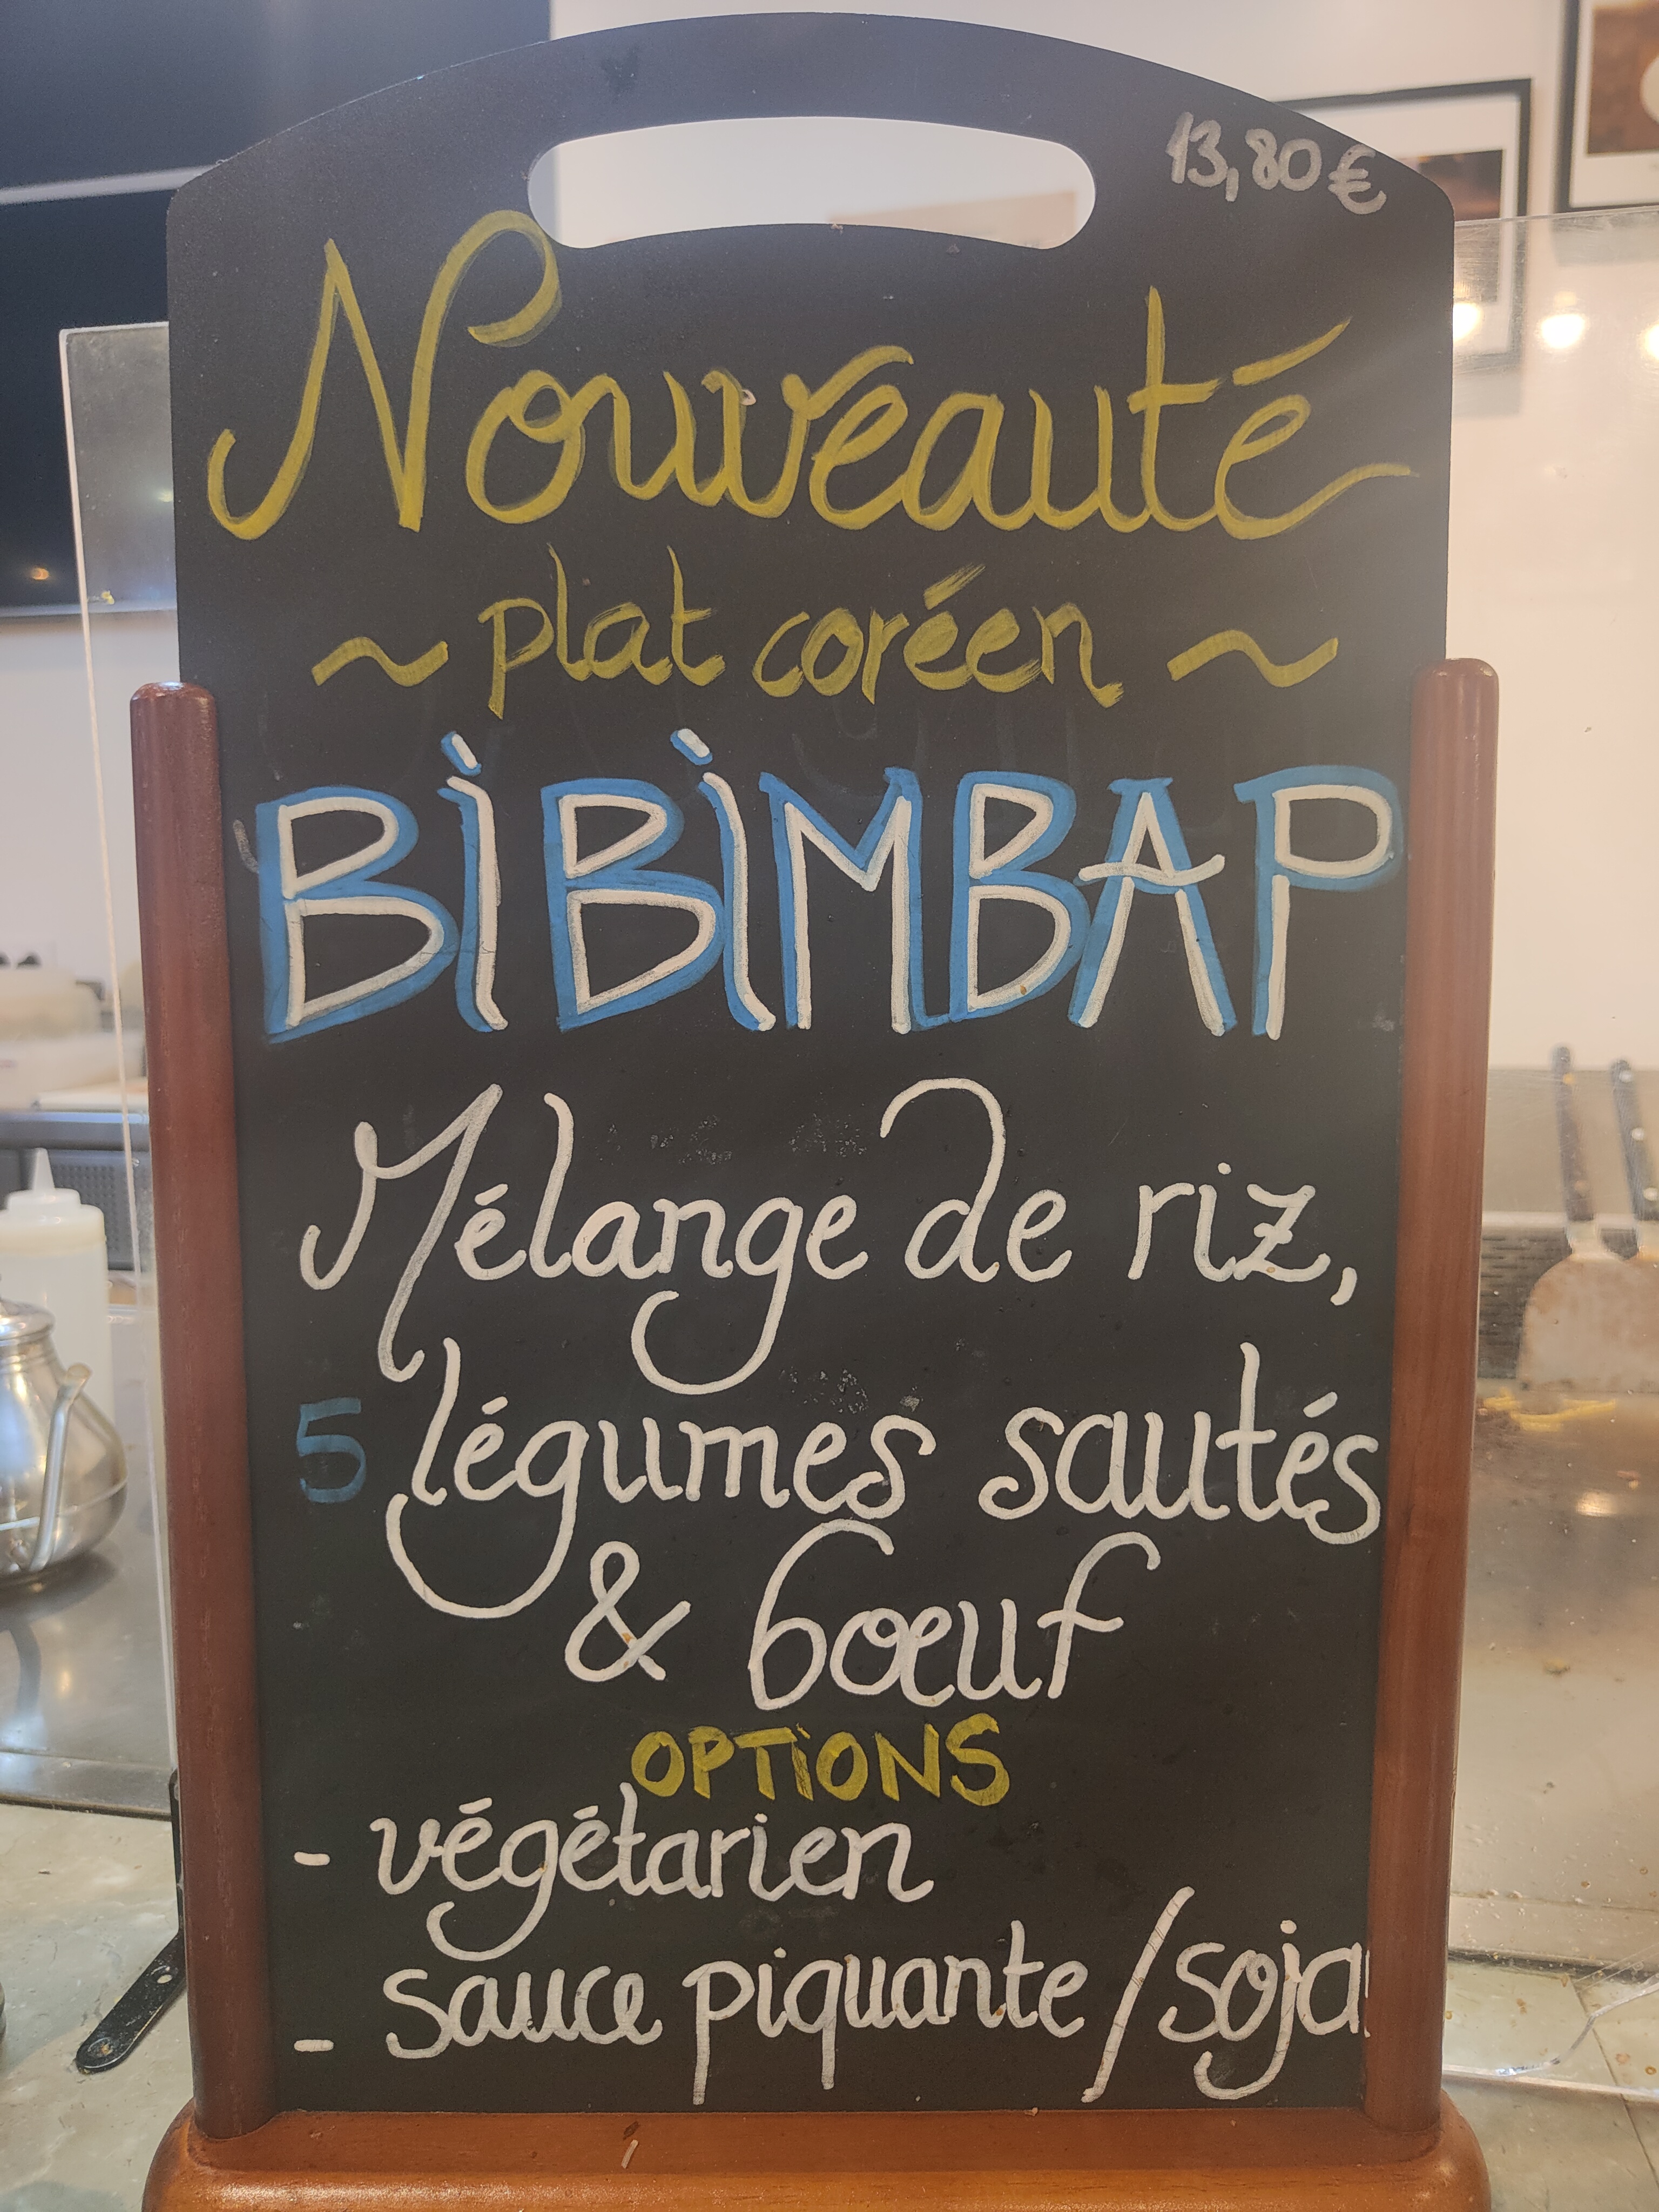 13,80€
Nouveauté
~ plat coréen ~
BiBiMBAP
Mélange de riz,
5 légumes sautés
& bœuf
OPTiONS
- végétarien
- sauce piquante/soja